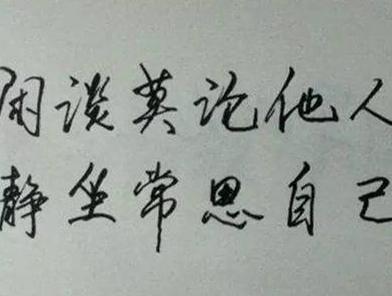 闲谈莫论他人
静坐常思自己